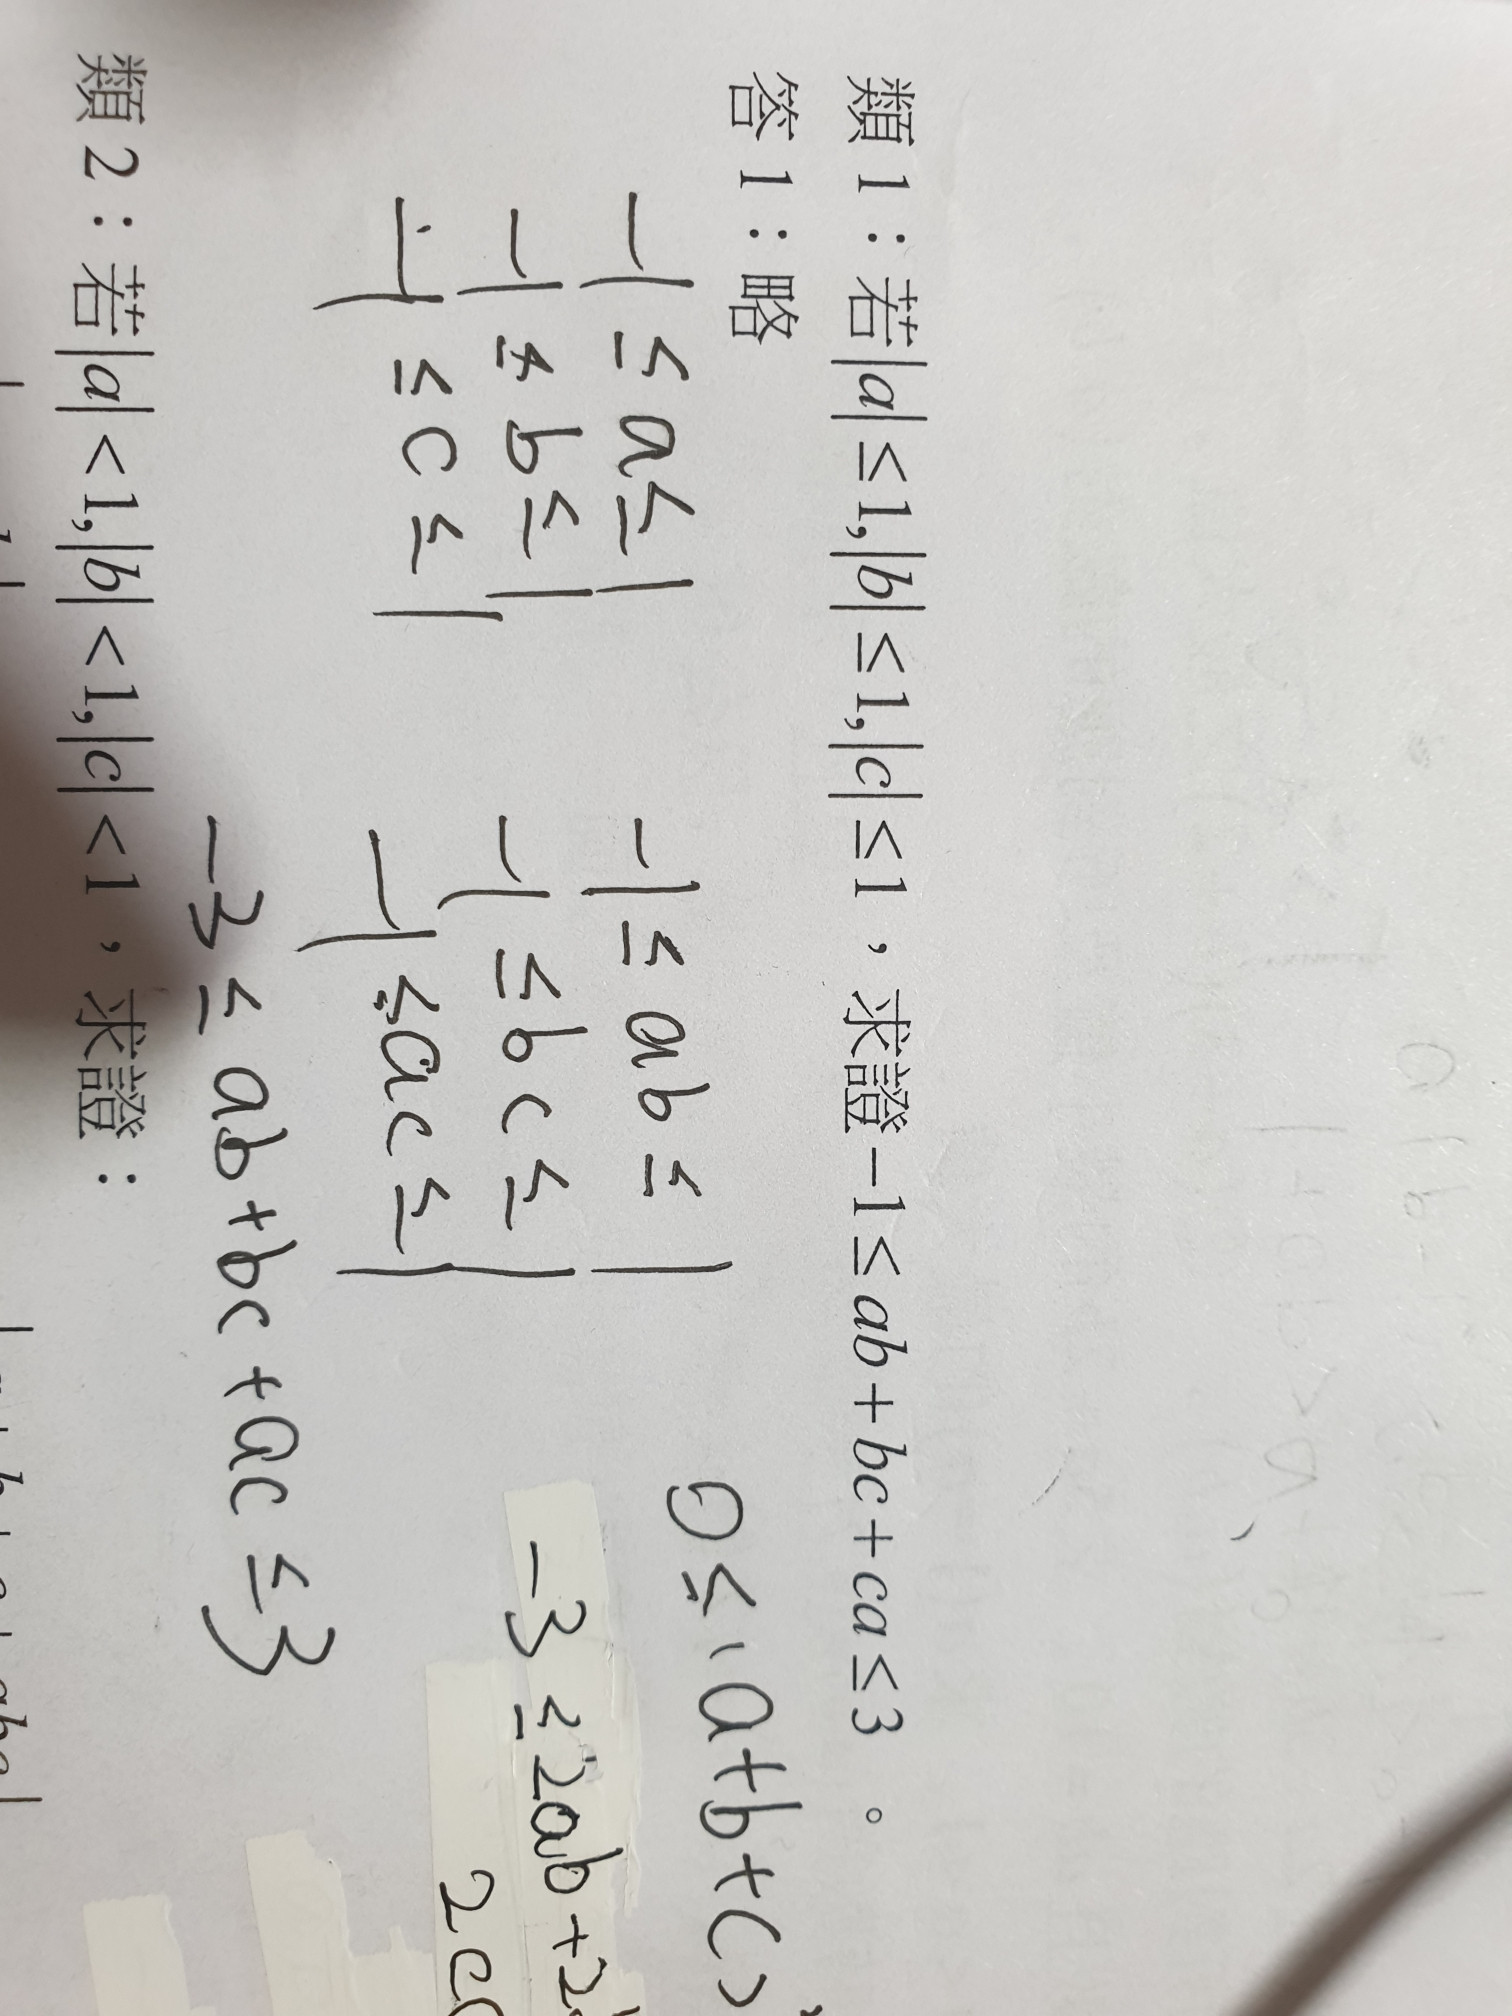 類1：若|a|≤1,|b|≤1,|c|≤1，求證−1≤ab+bc+ca≤3。
答1：略
−1≤a≤1
−1≤b≤1
−1≤c≤1
−1≤ab≤1
−1≤bc≤1
−1≤ac≤1
−3≤ab+bc+ac≤3
0≤(a+b+c)²
−3≤2ab+2
2c
類2：若|a|<1,|b|<1,|c|<1，求證：